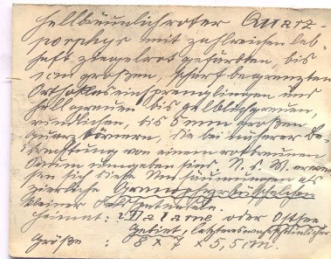 Hellbräunlichroter Quarz-
porphyr mit zahlreichen leb
haft ziegelrot gefärbten, bis
1 cm großen, scharf begrenzten
Orthoklaseinsprenglingen und
hell grauen bis gelblichgrauen,
rundlichen, bis 5 mm großen
Quarzkörnern, die bei näherer Be-
trachtung von einem rotbraunen
Saum umgeben sind. U. d. M. erwei
sen sich diese Umsäumungen als
zierliche Granophyrbüschelchen
kleiner
Heimat: Dalarne oder Ostsee
Gebiet,
Größe: 8 x 7 x 5,5 cm.